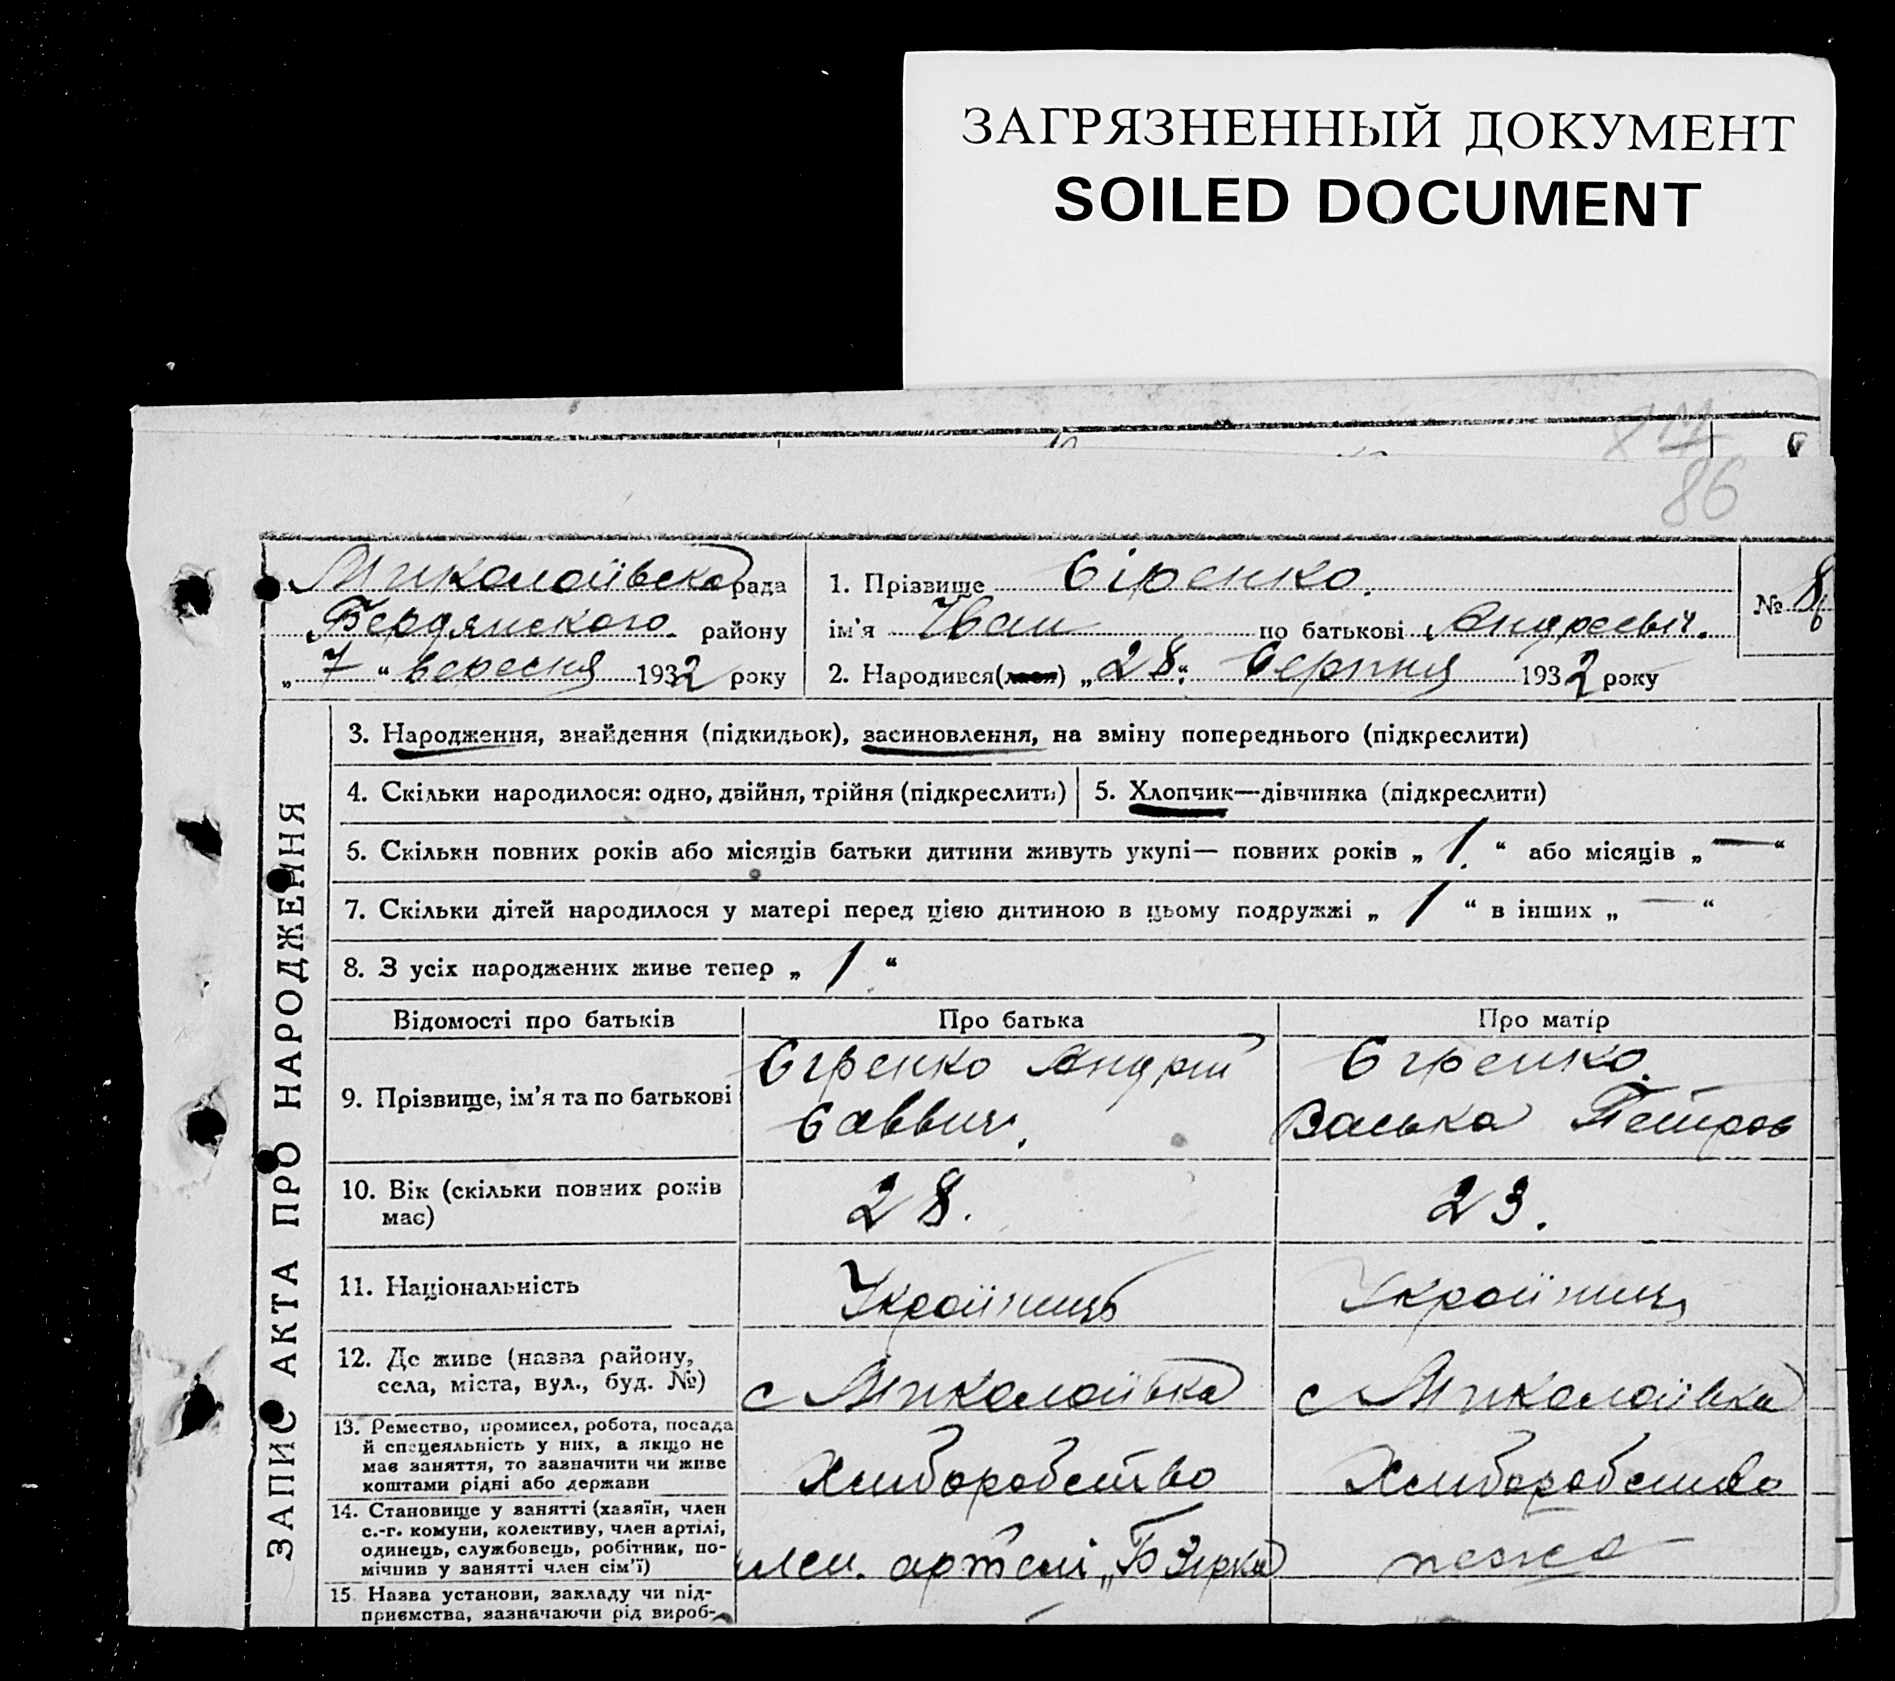 ЗАГРЯЗНЕННЫЙ ДОКУМЕНТ
SOILED DOCUMENT
86
Миколаївська рада
Бердянського району
„ 7 “ вересня 1932 року
1. Прізвище Сіренко.
ім’я Іван по батькові Андреєвич.
2. Народився(лася) „ 28 “ Серпня 1932 року
№ 86
ЗАПИС АКТА ПРО НАРОДЖЕННЯ
3. Народження, знайдення (підкидьок), засиновлення, на зміну попереднього (підкреслити)
4. Скільки народилося: одно, двійня, трійня (підкреслить)
5. Хлопчик—дівчинка (підкреслити)
5. Скільки повних років або місяців батьки дитини живуть укупі— повних років „ 1. “ або місяців „ — “
7. Скільки дітей народилося у матері перед цією дитиною в цьому подружжі „ 1 “ в інших „ — “
8. З усіх народжених живе тепер „ 1 “
Відомості про батьків
Про батька
Про матір
9. Прізвище, ім’я та по батькові
Сіренко Андрій
Саввич.
Сіренко.
Васька Петров
10. Вік (скільки повних років
має)
28.
23.
11. Національність
Українець
Українець
12. Де живе (назва району,
села, міста, вул., буд. №)
с Миколаївка
с Миколаївка
13. Ремество, промисел, робота, посада
й спецеяльність у них, а якщо не
має заняття, то зазначити чи живе
коштами рідні або держави
Хліборобство
Хліборобство
14. Становище у занятті (хазяїн, член
с.-г. комуни, колективу, член артілі,
одинець, службовець, робітник, по-
мічнив у занятті член сім’ї)
член. артелі „
15 Назва установи, закладу чи під-
приємства, зазначаючи рід вироб-